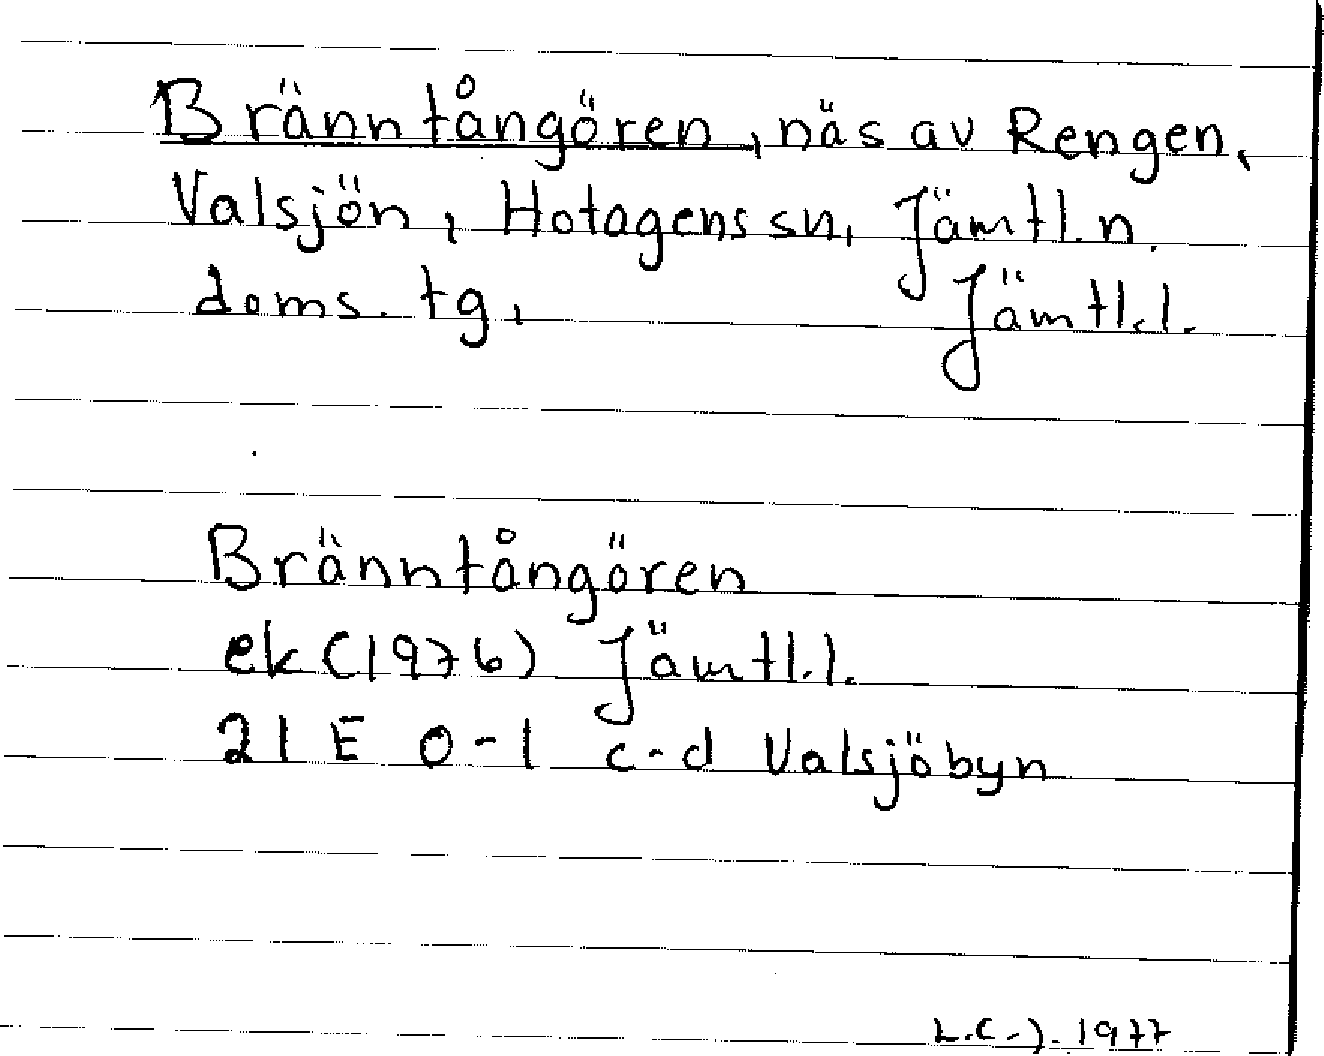 Bränntångören, näs av Rengen,
Valsjön, Hotagens sn, Jämtl. n.
doms. tg, Jämtl. l.
Bränntångören
ek (1976) Jämtl. l.
21 E 0-1 c-d Valsjöbyn
L.C-J. 1977